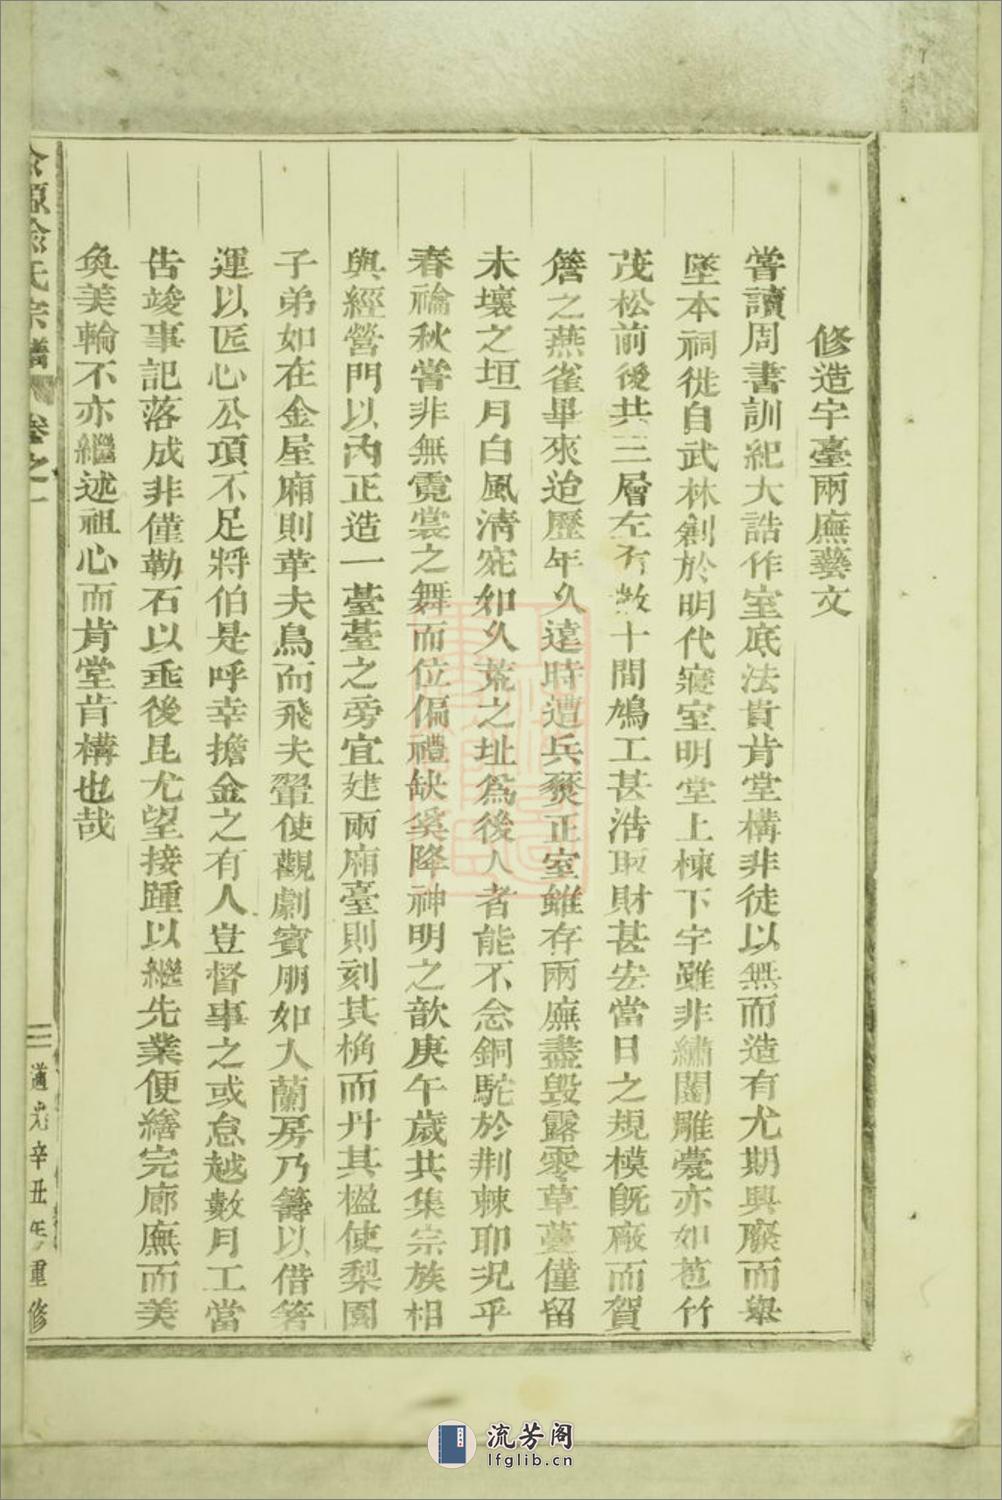 修造宇臺兩廡藝文
嘗讀周書訓紀大誥作室底法貴肯堂構非徒以無而造有尤期興廢而舉
墜本祠徙自武林創於明代寢室明堂上棟下宇雖非繡闥雕甍亦如苞竹
茂松前後共三層左右數十間鳩工甚浩取財甚宏當日之規模旣廠而賀
簷之燕雀畢來迨歷年久遠時遭兵燹正室雖存兩廡盡毁露零草蔓僅留
未壞之垣月白風清宛如久荒之址爲後人者能不念銅駝於荆棘耶况乎
春禴秋嘗非無霓裳之舞而位偏禮缺奚降神明之歆庚午歲共集宗族相
與經營門以內正造一臺臺之旁宜建兩廂臺則刻其桷而丹其楹使梨園
子弟如在金屋廂則革夫鳥而飛夫翬使觀劇賓朋如入蘭房乃籌以借箸
運以匠心公項不足將伯是呼幸擔金之有人豈督事之或怠越數月工當
告竣事記落成非僅勒石以垂後昆尤望接踵以繼先業便繕完廊廡而美
奐美輪不亦繼述祖心而肯堂肯構也哉
俞氏宗譜 卷之一 三 道光辛丑年重修
流芳阁
lfglib.cn